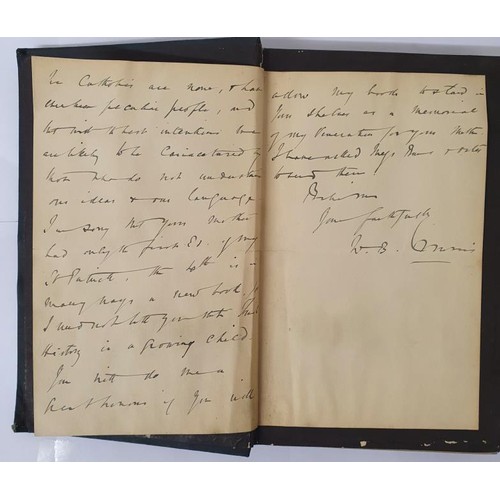 We Catholics are none, & have
peculiar people, and
the best intentions
are likely to be caricatured by
those who do not understand
our ideas & our language
I'm sorry that your Mother
had only the first Ed. of my
St Patrick. the 4th is in
many ways a new book, &
I need not tell you that Irish
History is a growing child.
You will do me a
great honour if you will
allow my books to stand in
your shelves as a memorial
of my veneration for your Mother
I have asked Mess
to send them
Believe me
Yours faithfully
W. B. Morris